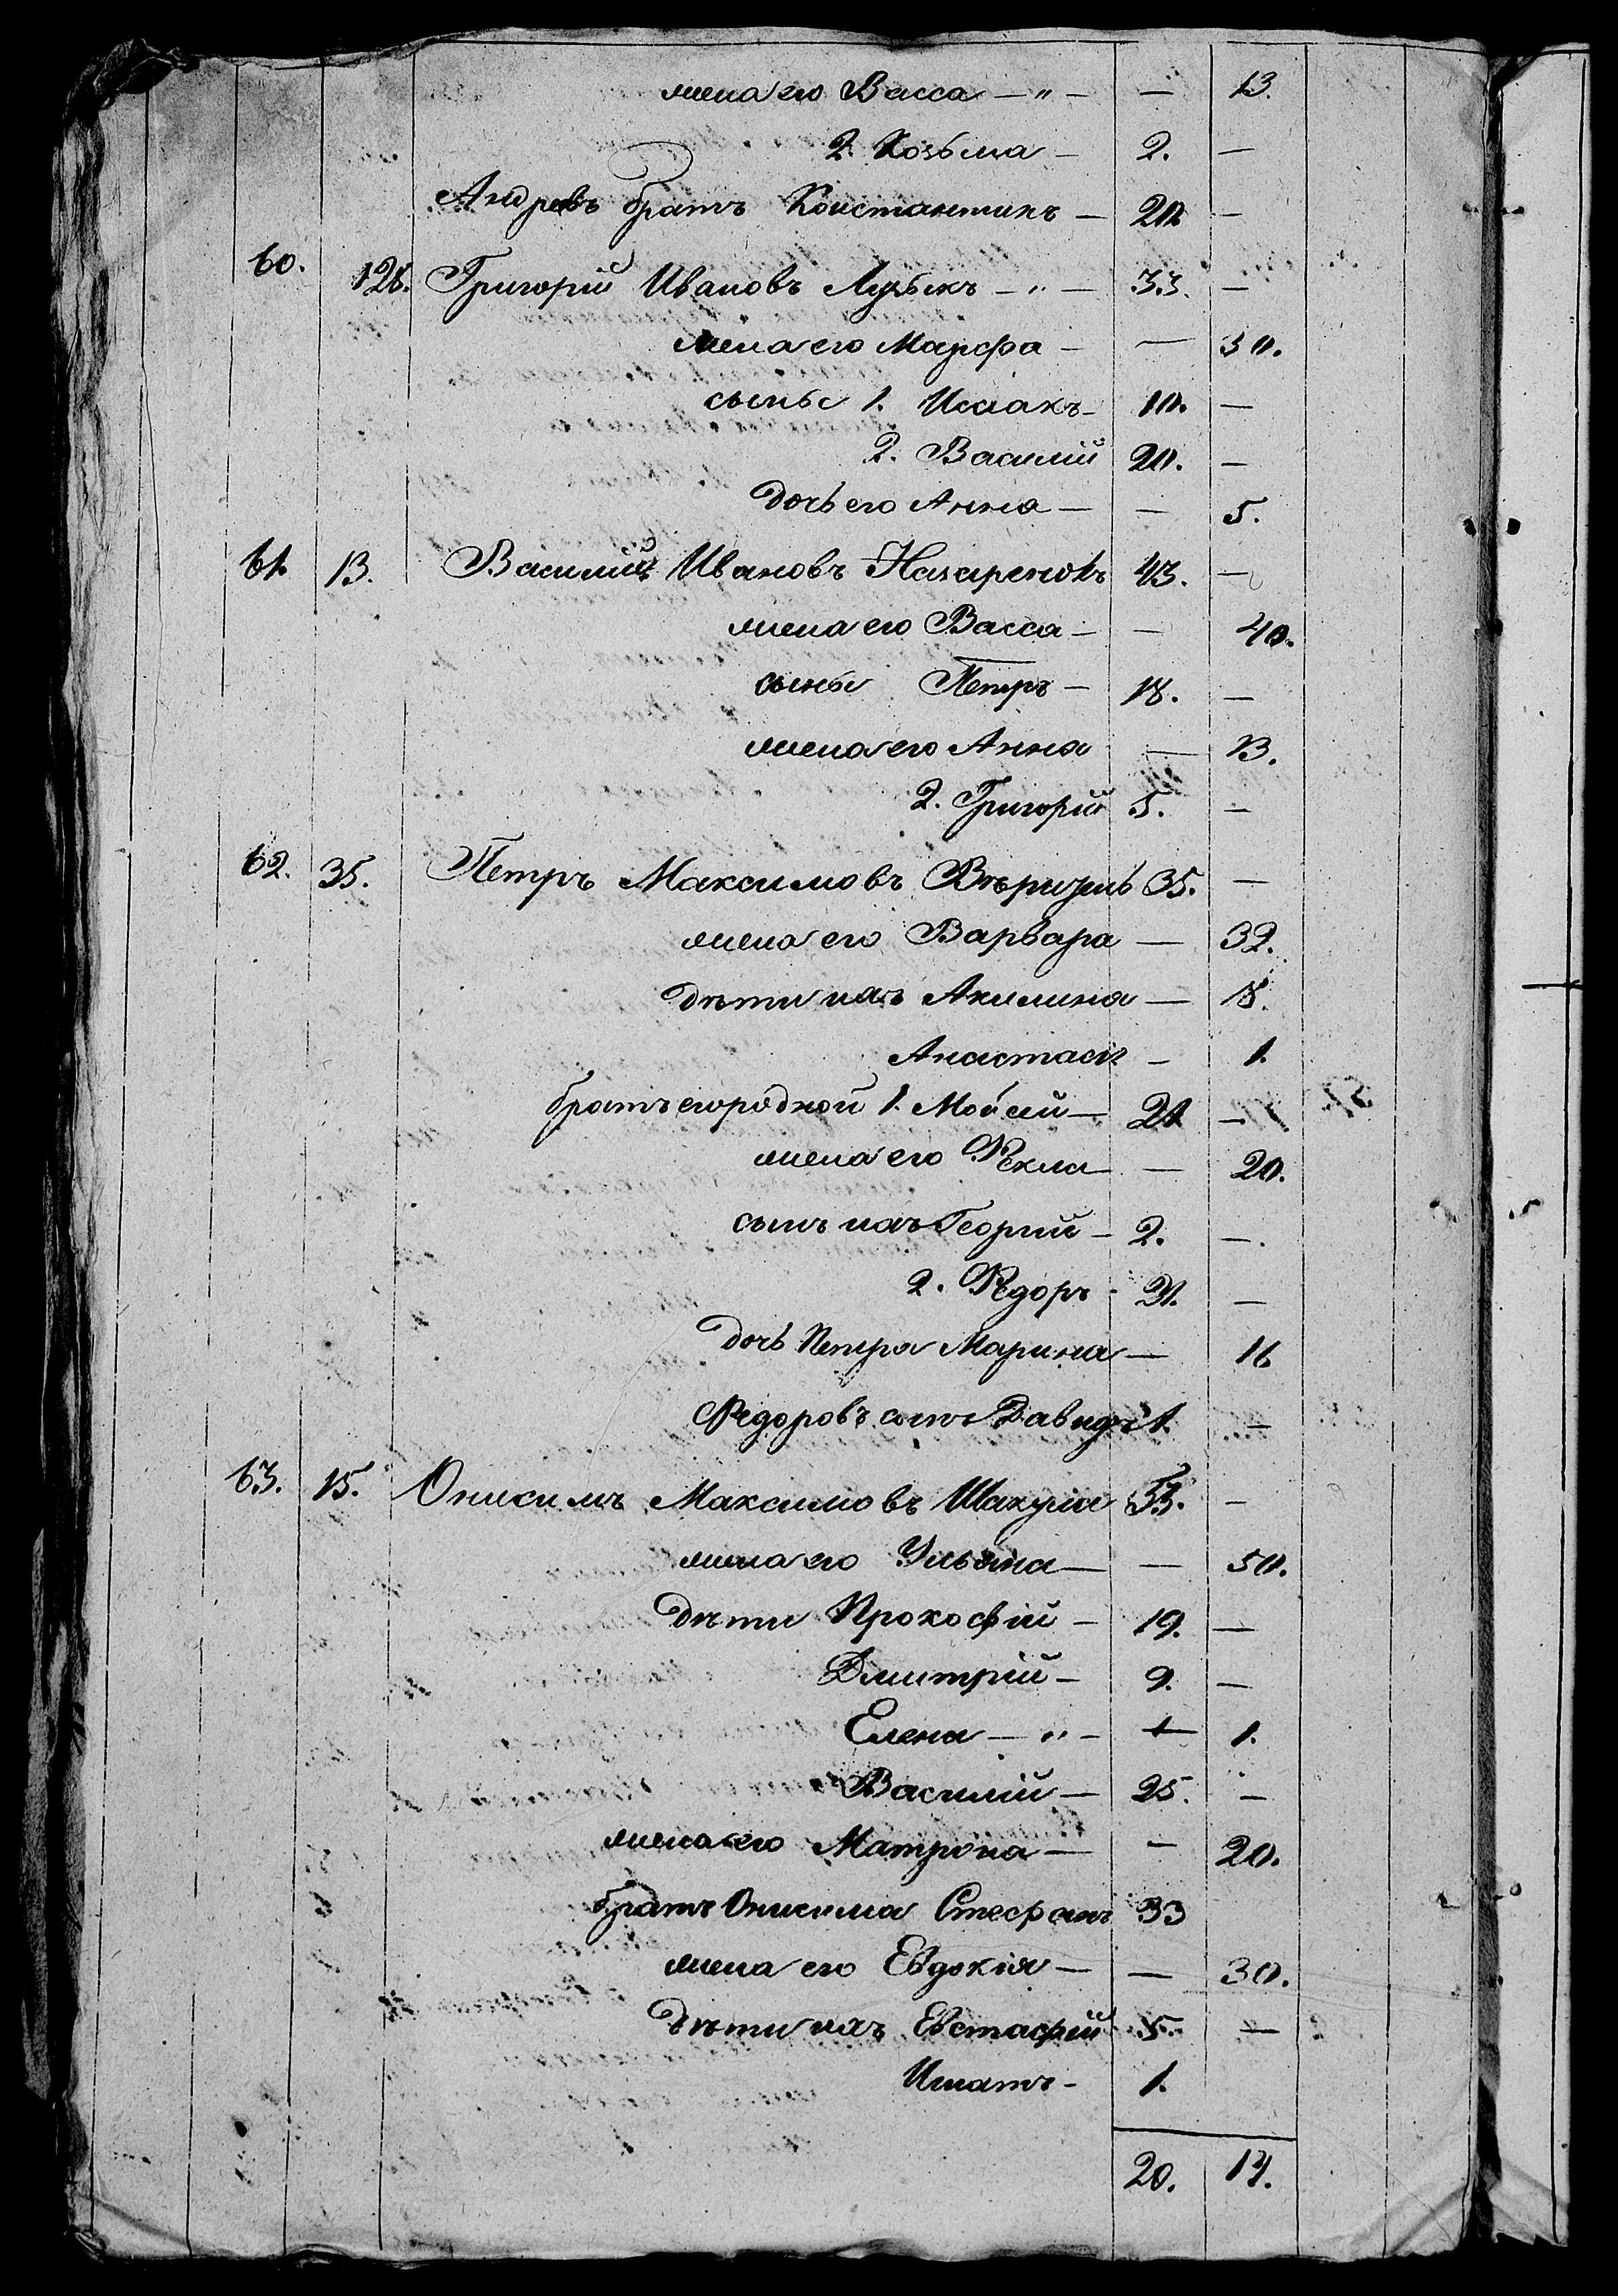 жена его Васса — " — — 13.
2. Козьма — 2. —
Андреевъ братъ Константинъ — 20 —
60. 128. Григорій Ивановъ Лузыкъ — " — 33. —
жена его Марфа — — 30.
сыны 1. Исаакъ — 10. —
2. Василій 20. —
дочь его Анна — — 5.
61. 13. Василій Ивановъ Назаренокъ 43. —
жена его Васса — — 40.
сыны Петръ — 18. —
жена его Анна — 23.
2. Григорій 5. —
62. 35. Петръ Максимовъ 35. —
жена его Варвара — 32.
дѣти ихъ Акилина — 8.
Анастасія — 1.
братъ его родной 1. Мойсей — 21 —
жена его Ѳекла — — 20.
сынъ ихъ Георгій — 2. —
2. Ѳедоръ - 21. —
дочь Петра Марина — 16
Ѳедоровъ сынъ Давидъ 1. —
63. 15. Онисимъ Максимовъ Шакула 53. —
жена его Ульяна — — 50.
дѣти Прокофій — 19. —
Дмитрій — 9. —
Елена — " — 1.
Василій — 25. —
жена его Матрона — — 20.
братъ Онисима Стефанъ 33
жена его Евдокія — — 30.
дѣти ихъ Евстафій 5. —
Игнатъ - 1.
20. 14.